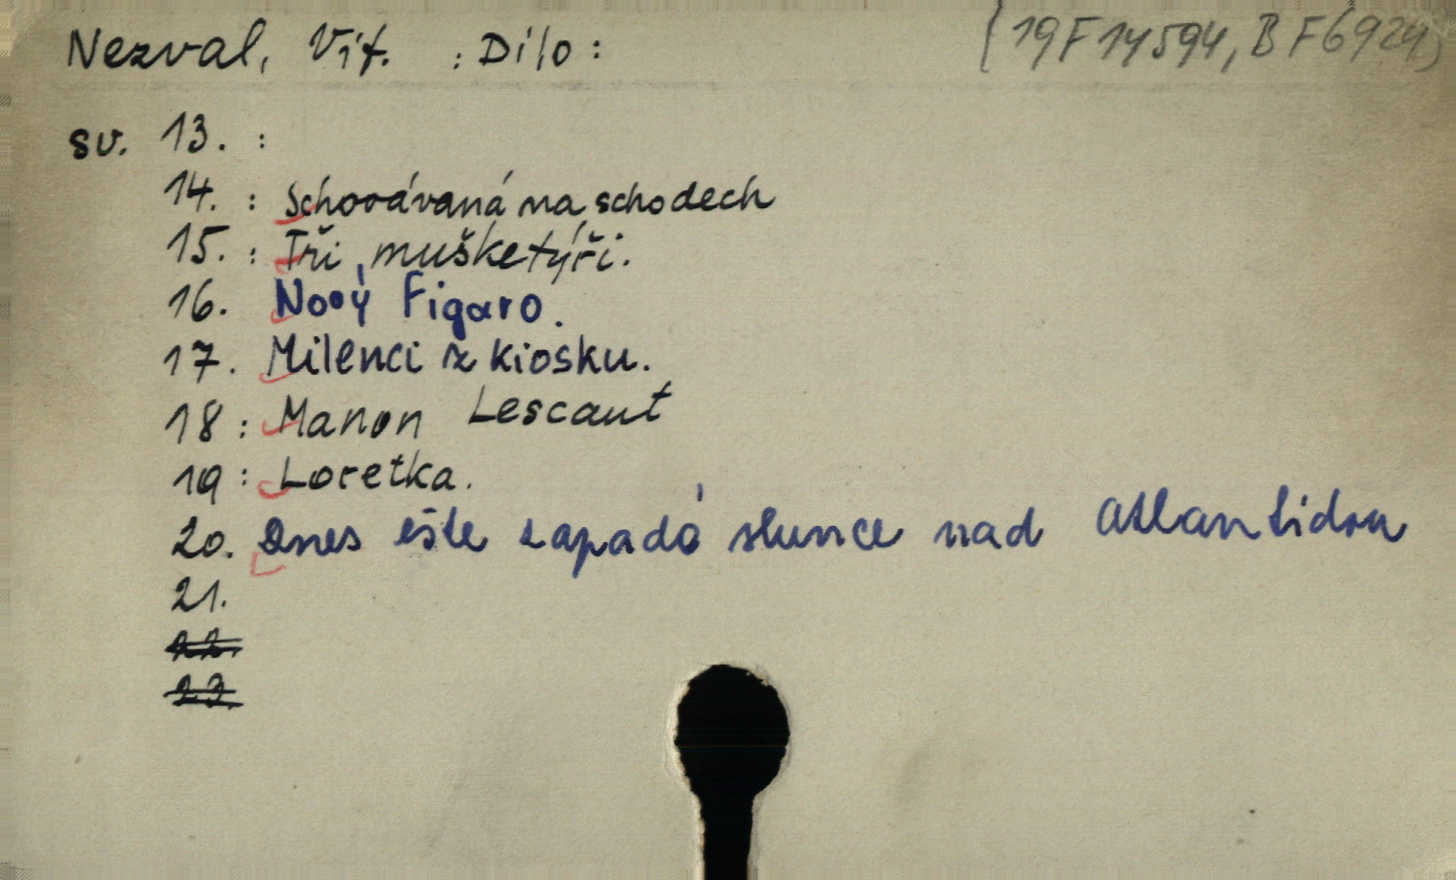 Nezval, Vít. : Dílo: (19F14594, BF6924)
sv. 13. :
14. : Schovávaná na schodech
15. : Tři mušketýři.
16. Nový Figaro.
17. Milenci z kiosku.
18 : Manon Lescaut
19 : Loretka.
20. Dnes ešte zapadá slunce nad Atlantidou
21.
22.
23.